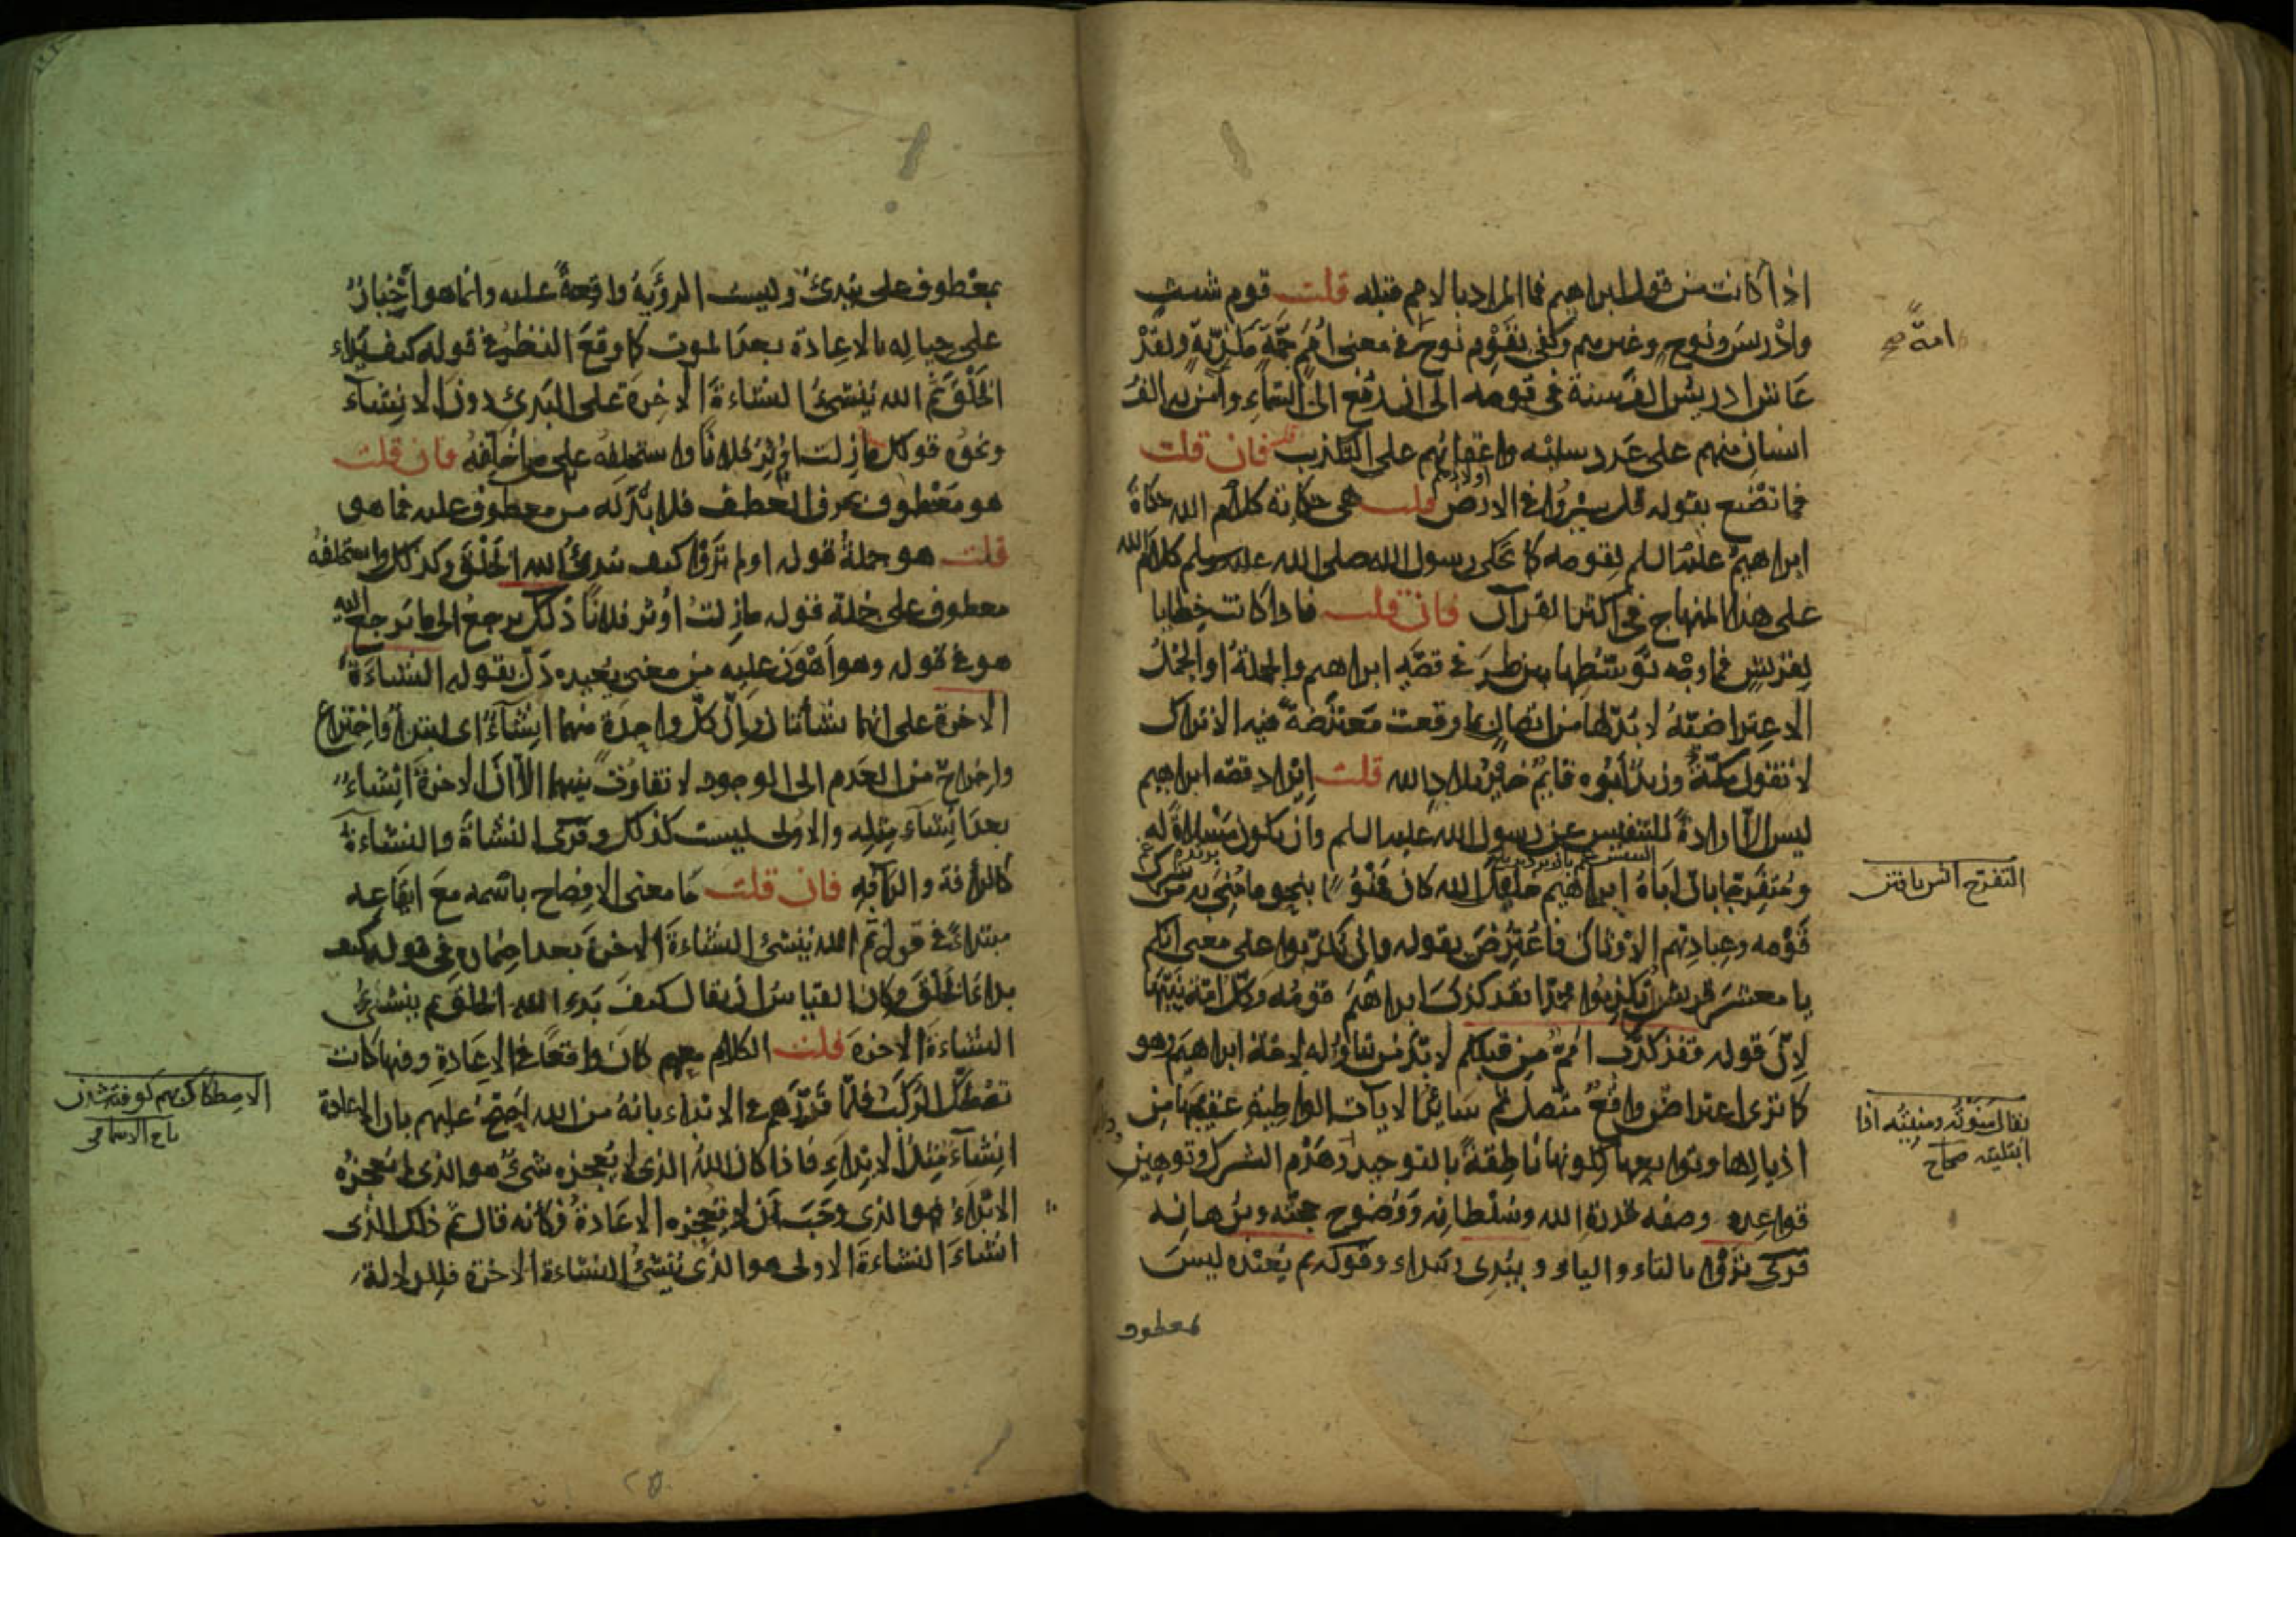 اذا كانت من قول ابراهيم فما المراد بالامم قبله قلت قوم شيث
وادريس ونوح وغيرهم وكفى بقوم نوح في معنى امم جمة مكذبة ولقد
عاش ادريس الف سنة في قومه الى ان رفع الى السماء وآمن به الف
انسان منهم على عدد سنيه واعقابهم على التكذيب فان قلت
فما تصنع بقوله قل سيروا في الارض قلت هي حكاية كلام الله حكاه
ابراهيم عليه السلم لقومه كما يحكى رسول الله صلى الله عليه وسلم كلام الله
على هذا المنهاج في اكثر القرآن فان قلت فاذا كانت خطابا
لقريش فما وجه توسطها بين طرفي قصة ابراهيم والجملة او الجمل
الاعتراضية لا بد لها من اتصال بما وقعت معترضة فيه الا تراك
لا تقول مكة وزيد ابوه قايم خير بلاد الله قلت ايراد قصة ابراهيم
ليس الا ارادة للتنفيس عن رسول الله عليه السلم وان يكون مسلاة له
ومتفرجا بان اباه ابراهيم خليل الله كان ممنوا بنحو ما مني به من شرك
قومه وعبادتهم الاوثان فاعترض بقوله وان تكذبوا على معنى انكم
يا معشر قريش ان تكذبوا محمدا فقد كذب ابراهيم قومه وكل امة نبيها
لان قوله فقد كذب امم من قبلكم لا بد من تناوله لامة ابراهيم وهو
كما ترى اعتراض واقع متصل ثم سائر الآيات الواطية عقبها من
اذيالها وتوابعها لكونها ناطقة بالتوحيد وهدم الشرك وتوهين
قواعده وصفة قدرة الله وسلطانه ووضوح حجته وبرهانه
قرئ تروا بالتاء والياء ويبدئ ويبدا وقوله ثم يعيده ليس
بمعطوف
امة صح
يقال منوته ومنيته اذا
ابتليته صحاح
بمعطوف على يبدئ وليست الرؤية واقعة عليه وانما هو اخبار
على حياله بالاعادة بعد الموت كما وقع النظر في قوله كيف بدا
الخلق ثم الله ينشئ النشاءة الآخرة على البدئ دون الانشاء
ونحوه قولك ما زلت اوثر فلانا واستخلفه على من اخلفه فان قلت
هو معطوف بحرف العطف فلا بد له من معطوف عليه فما هو
قلت هو جملة قوله اولم تروا كيف يبدئ الله الخلق وكذلك واستخلفه
معطوف على جملة قوله ما زلت اوثر فلانا ذلك يرجع الى ما يرجع اليه
هو في قوله وهو اهون عليه من معنى يعيده دل بقوله النشاءة
الآخرة على انهما نشأتان وان كل واحدة منهما انشاء اى ابتداء واختراع
واخراج من العدم الى الوجود لا تفاوت بينهما الا ان الآخرة انشاء
بعد انشاء مثله والاولى ليست كذلك وقرئ النشأة والنشاءة
كالرأفة والرآفة فان قلت ما معنى الافصاح باسمه مع ايقاعه
مبتدا في قوله ثم الله ينشئ النشاءة الآخرة بعد اضماره في قوله كيف
بدا الخلق وكان القياس ان يقال كيف بدء الله الخلق ثم ينشئ
النشاءة الآخرة قلت الكلام معهم كان واقعا في الاعادة وفيها كانت
تصطك الركب فلما قررهم في الابتداء بانه من الله احتج عليهم بان الاعادة
انشاء مثل الابتداء فاذا كان الله الذي لا يعجزه شئ هو الذي لم يعجزه
الابداء فهو الذي وجب ان لا تعجزه الاعادة فكانه قال ثم ذلك الذى
انشاء النشاءة الاولى هو الذى ينشئ النشاءة الآخرة فللدلالة